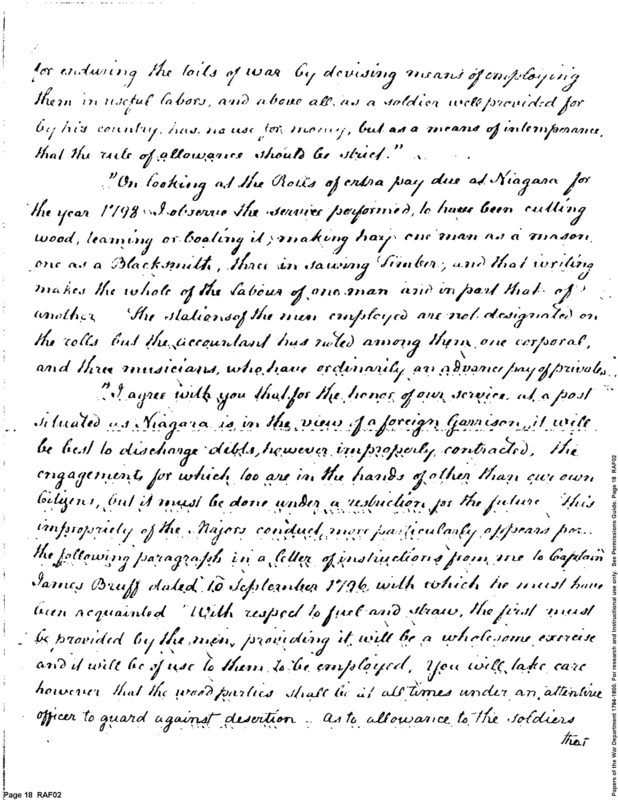 for enduring the toils of war by devising means of employing
them in useful labors, and above all, as a soldier well provided for
by his country has no use for money, but as a means of intemperance,
that the rule of allowance should be strict."
"On looking at the Rolls of extra pay due at Niagara for
the year 1798 I observe the service performed, to have been cutting
wood, teaming or boating it, making hay one man as a mason
one as a Blacksmith, three in sawing Timber, and that writing
makes the whole of the Labour of one man and in part that of
another The stations of the men employed are not designated on
the rolls but the accountant has noted among them one corporal,
and three musicians, who have ordinarily an advance pay of privates.
"I agree with you that for the honor of our service at a post
situated as Niagara is in the view of a foreign Garrison, it will
be best to discharge debts, however improperly contracted, the
engagements for which too are in the hands of other than our own
Citizens, but it must be done under a restriction for the future This
impropriety of the Majors conduct, more particularly appears
the following paragraph in a letter of instructions from me to Captain
James Bruff dated 10 September 1796 with which he must have
been acquainted With respect to fuel and straw, the first must
be provided by the men, providing it will be a wholesome exercise
and it will be of use to them to be employed, You will take care
however that the wood parties shall be at all times under an attentive
officer to guard against desertion. As to allowance to the soldiers
that
Page 18 RAF02
Papers of the War Department 1784-1800. For research and instructional use only. See Permissions Guide. Page 18 RAF02